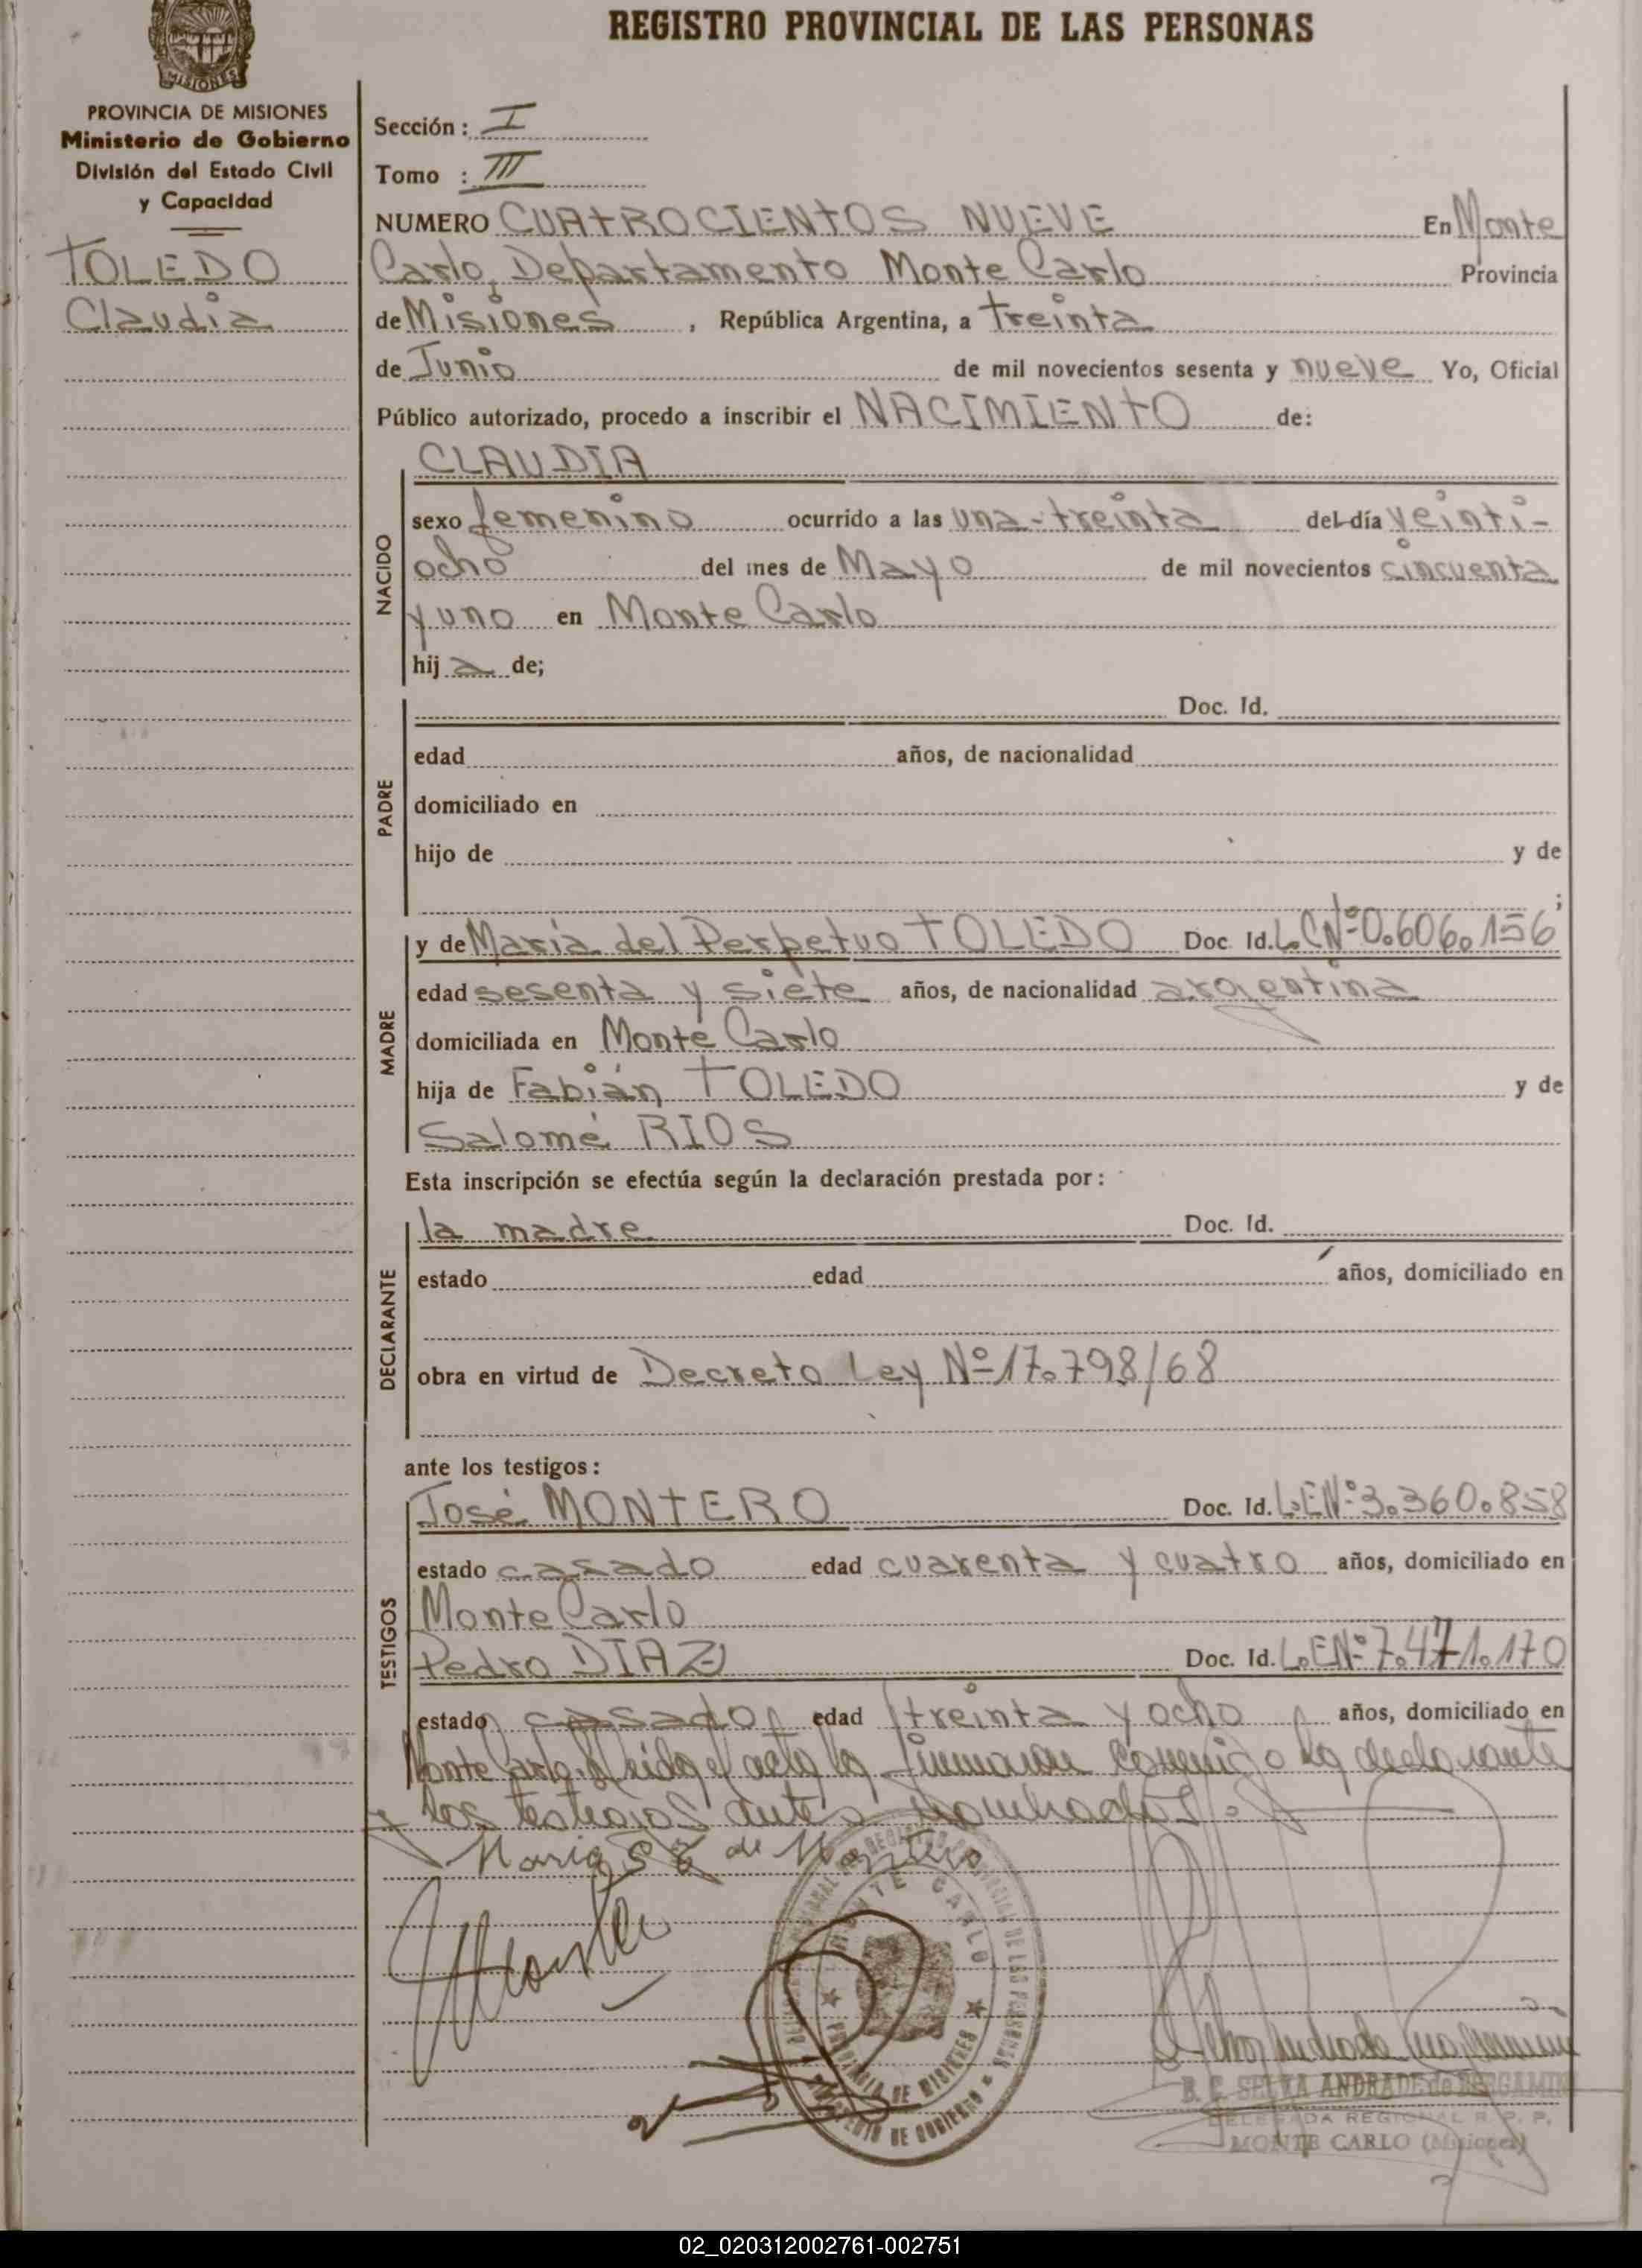 REGISTRO PROVINCIAL DE LAS PERSONAS
MISIONES
PROVINCIA DE MISIONES
Ministerio de Gobierno
División del Estado Civil
y Capacidad
TOLEDO
Claudia
Sección: I
Tomo : III
NUMERO CUATROCIENTOS NUEVE En Monte
Carlo, Departamento Monte Carlo Provincia
de Misiones , República Argentina, a treinta
de Junio de mil novecientos sesenta y nueve Yo, Oficial
Público autorizado, procedo a inscribir el NACIMIENTO de:
NACIDO
CLAUDIA
sexo femenino ocurrido a las una-treinta del día veinti-
ocho del mes de Mayo de mil novecientos cincuenta
y uno en Monte Carlo
hija de;
PADRE
Doc. Id.
edad años, de nacionalidad
domiciliado en
hijo de y de
;
MADRE
y de María del Perpetuo TOLEDO Doc Id. L.C Nº 0.606.156
edad sesenta y siete años, de nacionalidad argentina
domiciliada en Monte Carlo
hija de Fabián TOLEDO y de
Salomé RIOS
Esta inscripción se efectúa según la declaración prestada por:
DECLARANTE
la madre Doc. Id.
estado edad años, domiciliado en
obra en virtud de Decreto Ley Nº 17.798/68
ante los testigos:
TESTIGOS
José MONTERO Doc. Id. L.E Nº 3.360.858
estado casado edad cuarenta y cuatro años, domiciliado en
Monte Carlo
Pedro DIAZ Doc. Id. L.E Nº 7.471.170
estado casado edad treinta y ocho años, domiciliado en
Monte Carlo. Leida el acta la firmaron conmigo la declarante
y los testigos antes nombrados.-
Maria de
MONTE CARLO
PROVINCIA DE MISIONES
MINISTERIO DE GOBIERNO
B. C. SELVA ANDRADE de BERGAMIN
DELEGADA REGIONAL R. P. P.
MONTE CARLO (Misiones)
02_020312002761-002751